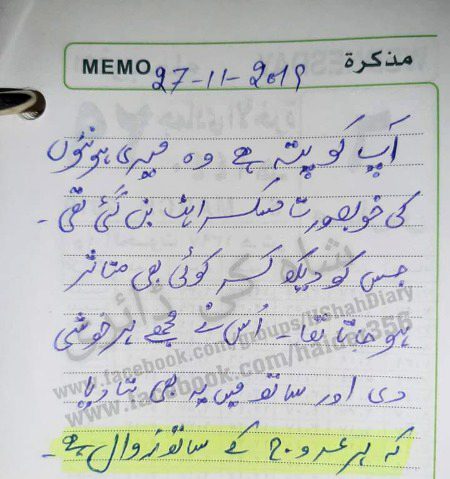 MEMO مذكرة
27-11-2019
آپ کو پتہ ہے وہ میری ہونٹوں
کی خوبصورت مسکراہٹ بن گئی تھی۔
جس کو دیکھ کر کوئی بھی متاثر
ہو جاتا تھا۔ اُس نے مجھے ہر خوشی
دی اور ساتھ میں یہ بھی بتا دیا
کہ ہر عروج کے ساتھ زوال ہے۔
شاہ جی ڈائری
www.facebook.com/groups/HShahDiary
www.facebook.com/haider355